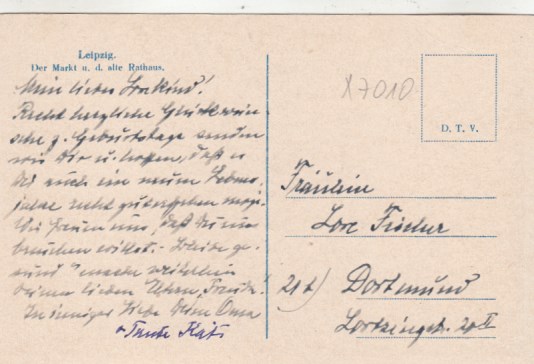 Leipzig.
Der Markt u. d. alte Rathaus.
Mein liebes Lorekind!
Recht herzliche Glückwün-
sche z. Geburtstage senden
wir Dir u. hoffen, daß es
Dir auch ein neuem Lebens-
jahre recht gut ergehen möge.
Wir freuen uns, daß Du uns
besuchen willst. - Bleibe ge-
sund u. mache weiterhin
Deinen lieben Eltern Freude!
In inniger Liebe Deine Oma
u. Tante Kät
X7010
D. T. V.
Fräulein
Lore Fischer
21b) Dortmund
Lortzingstr.